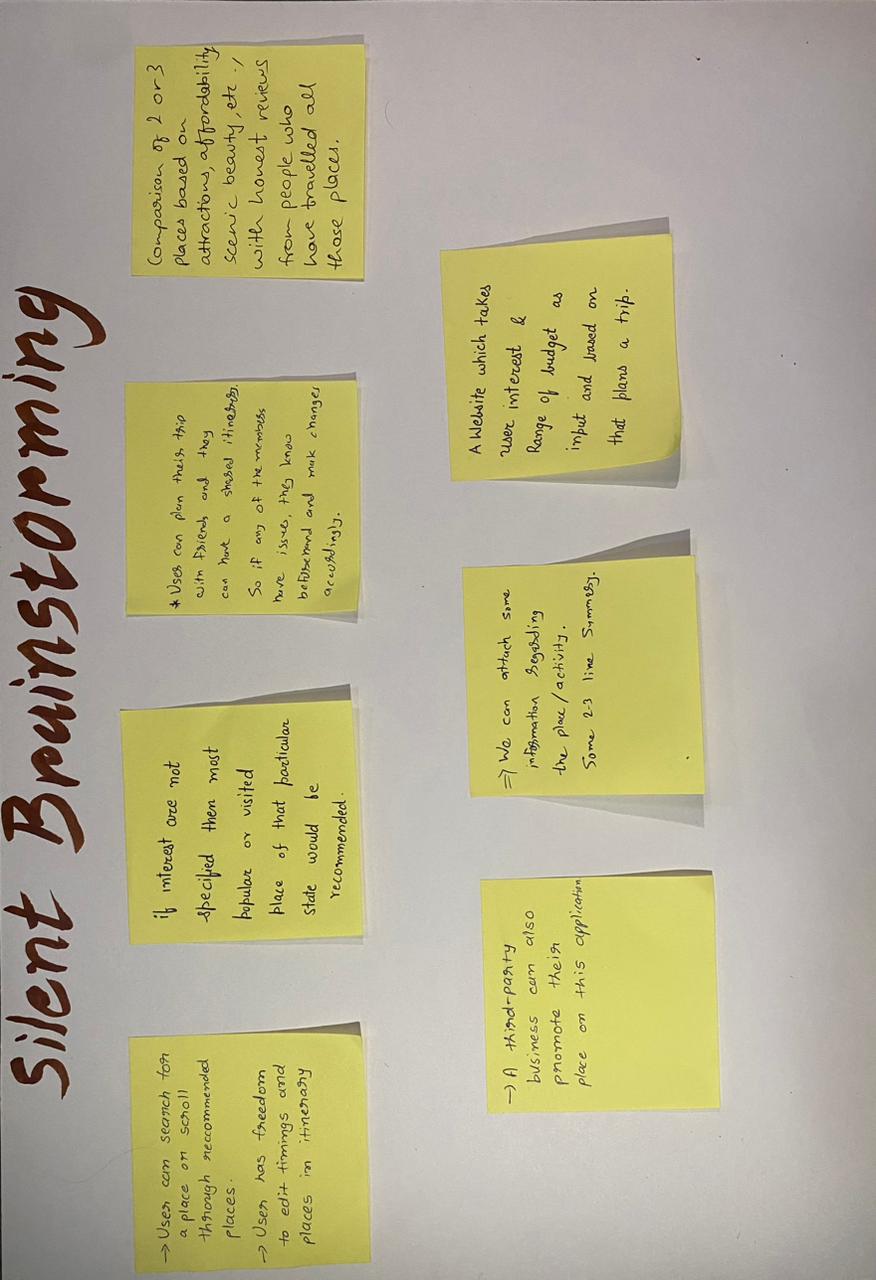 Silent Brainstorming
→ User can search for
a place or scroll
through reccommended
places.
→ User has freedom
to edit timings and
places in itinerary
if interest are not
specified then most
popular or visited
place of that particular
state would be
recommended.
* User can plan their trip
with friends and they
can have a shared itinerary.
So if any of the members
have issues, they know
beforehand and mak changes
accordingly.
Comparison of 2 or 3
places based on
attractions, affordability
scenic beauty, etc.,
with honest reviews
from people who
have travelled all
those places.
→ A third-party
business can also
promote their
place on this application
⇒ We can attach some
information regarding
the place/activity.
Some 2-3 line Summery.
A Website which takes
user interest &
Range of budget as
input and based on
that plans a trip.